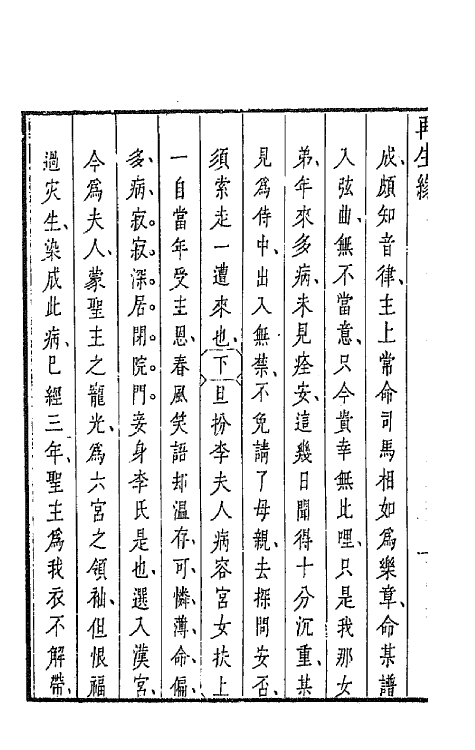 再生緣
成、頗知音律、主上常命司馬相如爲樂章、命某譜
入弦曲、無不當意、只今貴幸無比哩、只是我那女
弟、年來多病、未見痊安、這幾日聞得十分沉重、某
見爲侍中、出入無禁、不免請了母親、去探問安否、
須索走一遭來也、下旦扮李夫人病容宮女扶上
一自當年受主恩、春風笑語却溫存、可憐薄命偏
多病、寂寂深居閉院門。妾身李氏是也、選入漢宮、
今爲夫人、蒙聖主之寵光、爲六宮之領袖、但恨福
過灾生、染成此病、巳經三年、聖主爲我衣不解帶、